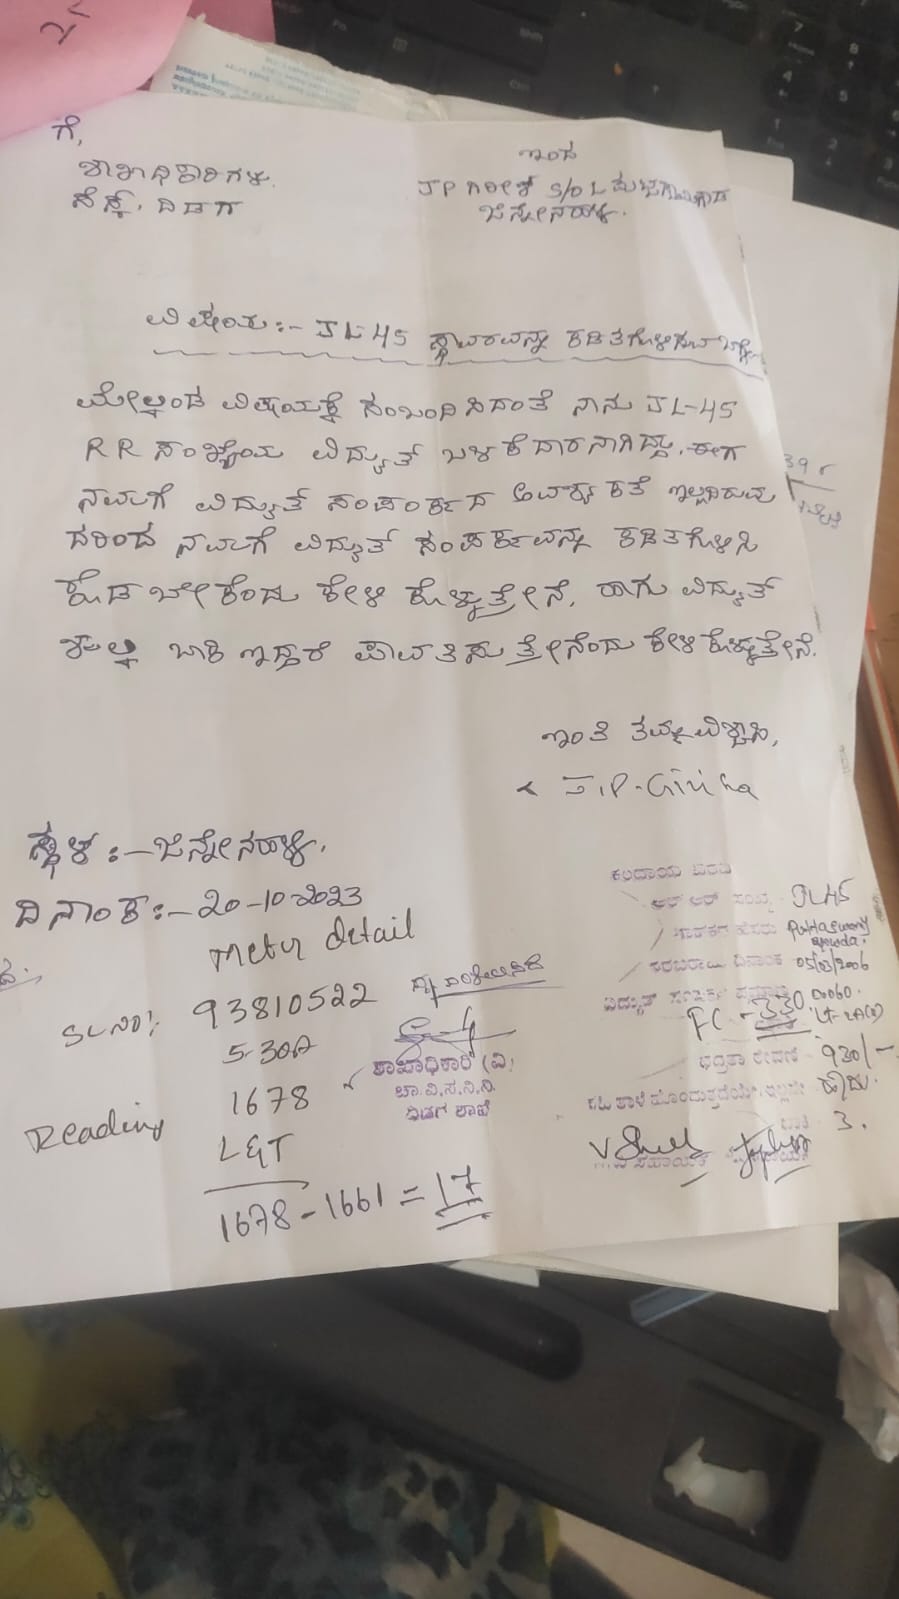 ಗೆ,
ಶಾಖಾಧಿಕಾರಿಗಳು.
ಸೆಸ್ಕ್. ದಿಡಗ
ಇಂದ
JP ಗಿರೀಶ S/O L
ಜಿನ್ನೇನಹಳ್ಳಿ.
ವಿಷಯ:- JL-45 ಸ್ಥಾವರವನ್ನು ಕಡಿತಗೊಳಿಸುವ ಬಗ್ಗೆ
ಮೇಲ್ಕಂಡ ವಿಷಯಕ್ಕೆ ಸಂಬಂಧಿಸಿದಂತೆ ನಾನು JL-45
RR ಸಂಖ್ಯೆಯ ವಿದ್ಯುತ್ ಬಳಕೆದಾರನಾಗಿದ್ದು. ಈಗ
ನಮಗೆ ವಿದ್ಯುತ್ ಸಂಪರ್ಕದ ಅವಶ್ಯಕತೆ ಇಲ್ಲದಿರುವು
ದರಿಂದ ನಮಗೆ ವಿದ್ಯುತ್ ಸಂಪರ್ಕವನ್ನು ಕಡಿತಗೊಳಿಸಿ
ಕೊಡಬೇಕೆಂದು ಕೇಳಿಕೊಳ್ಳುತ್ತೇನೆ. ಹಾಗು ವಿದ್ಯುತ್
ಶುಲ್ಕ ಬಾಕಿ ಇದ್ದರೆ ಪಾವತಿಸುತ್ತೇನೆಂದು ಕೇಳಿಕೊಳ್ಳುತ್ತೇನೆ.
ಇಂತಿ ತಮ್ಮ ವಿಶ್ವಾಸಿ,
J.P-Girisha
ಸ್ಥಳ :- ಜಿನ್ನೇನಹಳ್ಳಿ.
ದಿನಾಂಕ :- 20-10-2023
meter detail
SL NO: 93810522
5-30A
Reading 1678
L&T
1678-1661 = 17
ಶಾಖಾಧಿಕಾರಿ (ವಿ)
ಚಾ.ವಿ.ಸ.ನಿ.ನಿ.
ದಿಡಗ ಶಾಖೆ
ಕಂದಾಯ ಶಾಖೆ
ಆರ್ ಆರ್ ಸಂಖ್ಯೆ JL45
ಗ್ರಾಹಕರ ಹೆಸರು
ಸರಬರಾಜು ದಿನಾಂಕ 05/03/2006
ವಿದ್ಯುತ್ ಸಂಪರ್ಕ ಪ್ರಮಾಣ 00060.
FC - 330
ಭದ್ರತಾ ಠೇವಣಿ 930/-
ಬಾಕಿ 3.